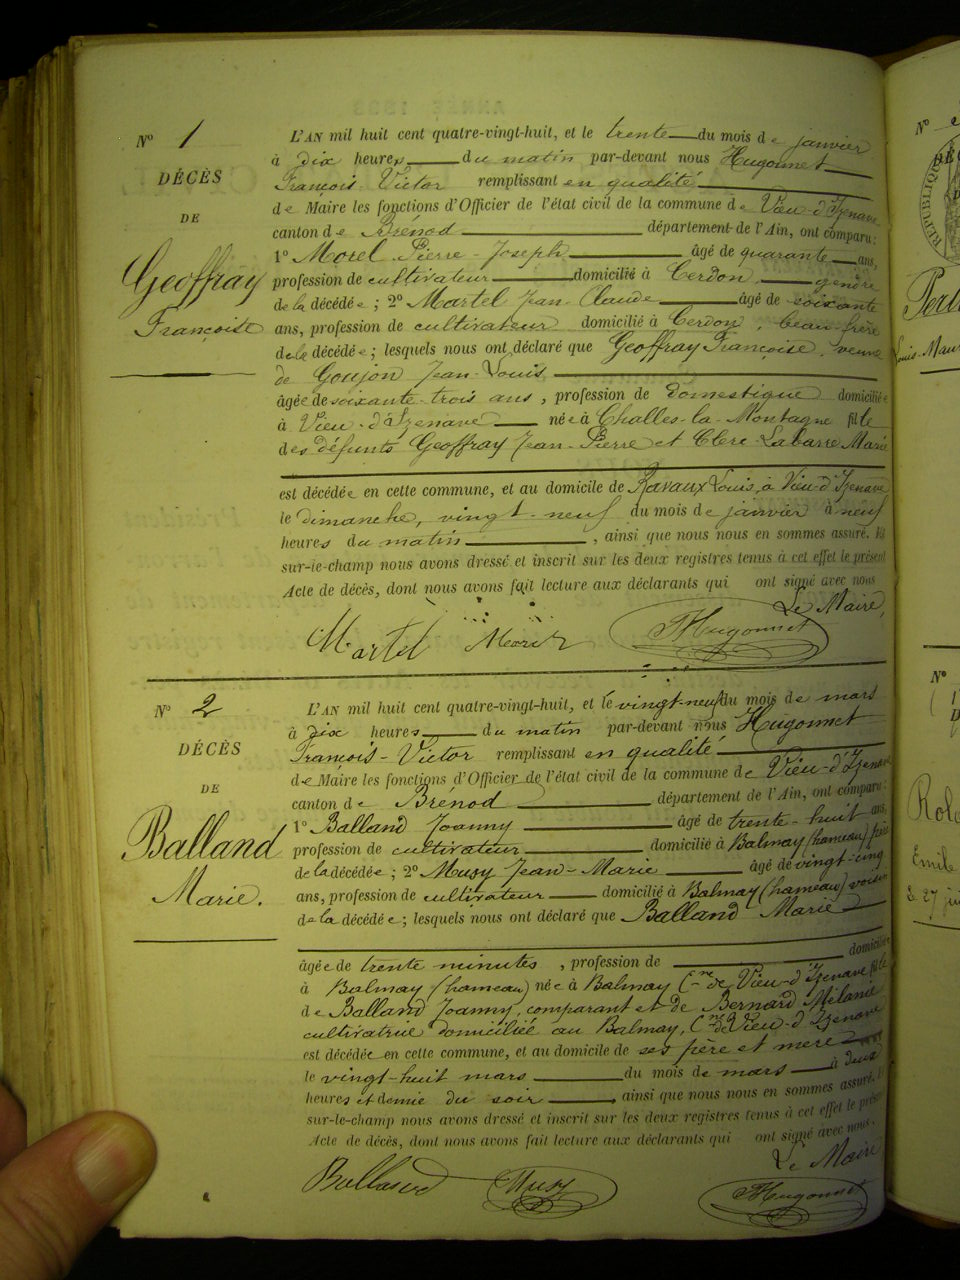 Nº 1
DÉCÈS
DE
Geoffray
Françoise
L'AN mil huit cent quatre-vingt-huit, et le trente du mois de janvier
à dix heures du matin par-devant nous Hugonnet
François-Victor remplissant en qualité
de Maire les fonctions d'Officier de l'état civil de la commune de Vieu-d'Izenave
canton de Brénod département de l'Ain, ont comparu:
1º Morel Pierre-Joseph âgé de quarante ans,
profession de cultivateur domicilié à Cerdon, gendre
de la décédée; 2º Martel Jean-Claude âgé de soixante
ans, profession de cultivateur domicilié à Cerdon, beau-frère
de la décédée; lesquels nous ont déclaré que Geoffray Françoise, veuve
de Goujon Jean-Louis
âgée de soixante-trois ans, profession de domestique domiciliée
à Vieu-d'Izenave née à Challes-la-Montagne fille
des défunts Geoffray Jean-Pierre et Clerc-Labarre Marie
est décédée en cette commune, et au domicile de Ravaux Louis, à Vieu-d'Izenave
le dimanche, vingt-neuf du mois de janvier à neuf
heures du matin, ainsi que nous nous en sommes assuré. Et
sur-le-champ nous avons dressé et inscrit sur les deux registres tenus à cet effet le présent
Acte de décès, dont nous avons fait lecture aux déclarants qui ont signé avec nous
Le Maire,
Martel Morel Hugonnet
Nº 2
DÉCÈS
DE
Balland
Marie.
L'AN mil huit cent quatre-vingt-huit, et le vingt-neuf du mois de mars
à dix heures du matin par-devant nous Hugonnet
François-Victor remplissant en qualité
de Maire les fonctions d'Officier de l'état civil de la commune de Vieu-d'Izenave
canton de Brénod département de l'Ain, ont comparu:
1º Balland Joanny âgé de trente-huit ans,
profession de cultivateur domicilié à Balmay (hameau) père
de la décédée; 2º Musy Jean-Marie âgé de vingt-cinq
ans, profession de cultivateur domicilié à Balmay (hameau) voisin
de la décédée; lesquels nous ont déclaré que Balland Marie
âgée de trente minutes, profession de domiciliée
à Balmay (hameau) née à Balmay Cne de Vieu-d'Izenave fille
de Balland Joanny, comparant et de Bernard Milanie
cultivatrice domiciliée au Balmay, Cne de Vieu-d'Izenave
est décédée en cette commune, et au domicile de ses père et mère
le vingt-huit mars du mois de mars à deux
heures et demie du soir, ainsi que nous nous en sommes assuré. Et
sur-le-champ nous avons dressé et inscrit sur les deux registres tenus à cet effet le présent
Acte de décès, dont nous avons fait lecture aux déclarants qui ont signé avec nous.
Le Maire
Balland Musy Hugonnet
Nº
Louis-Mau
Nº
Emile